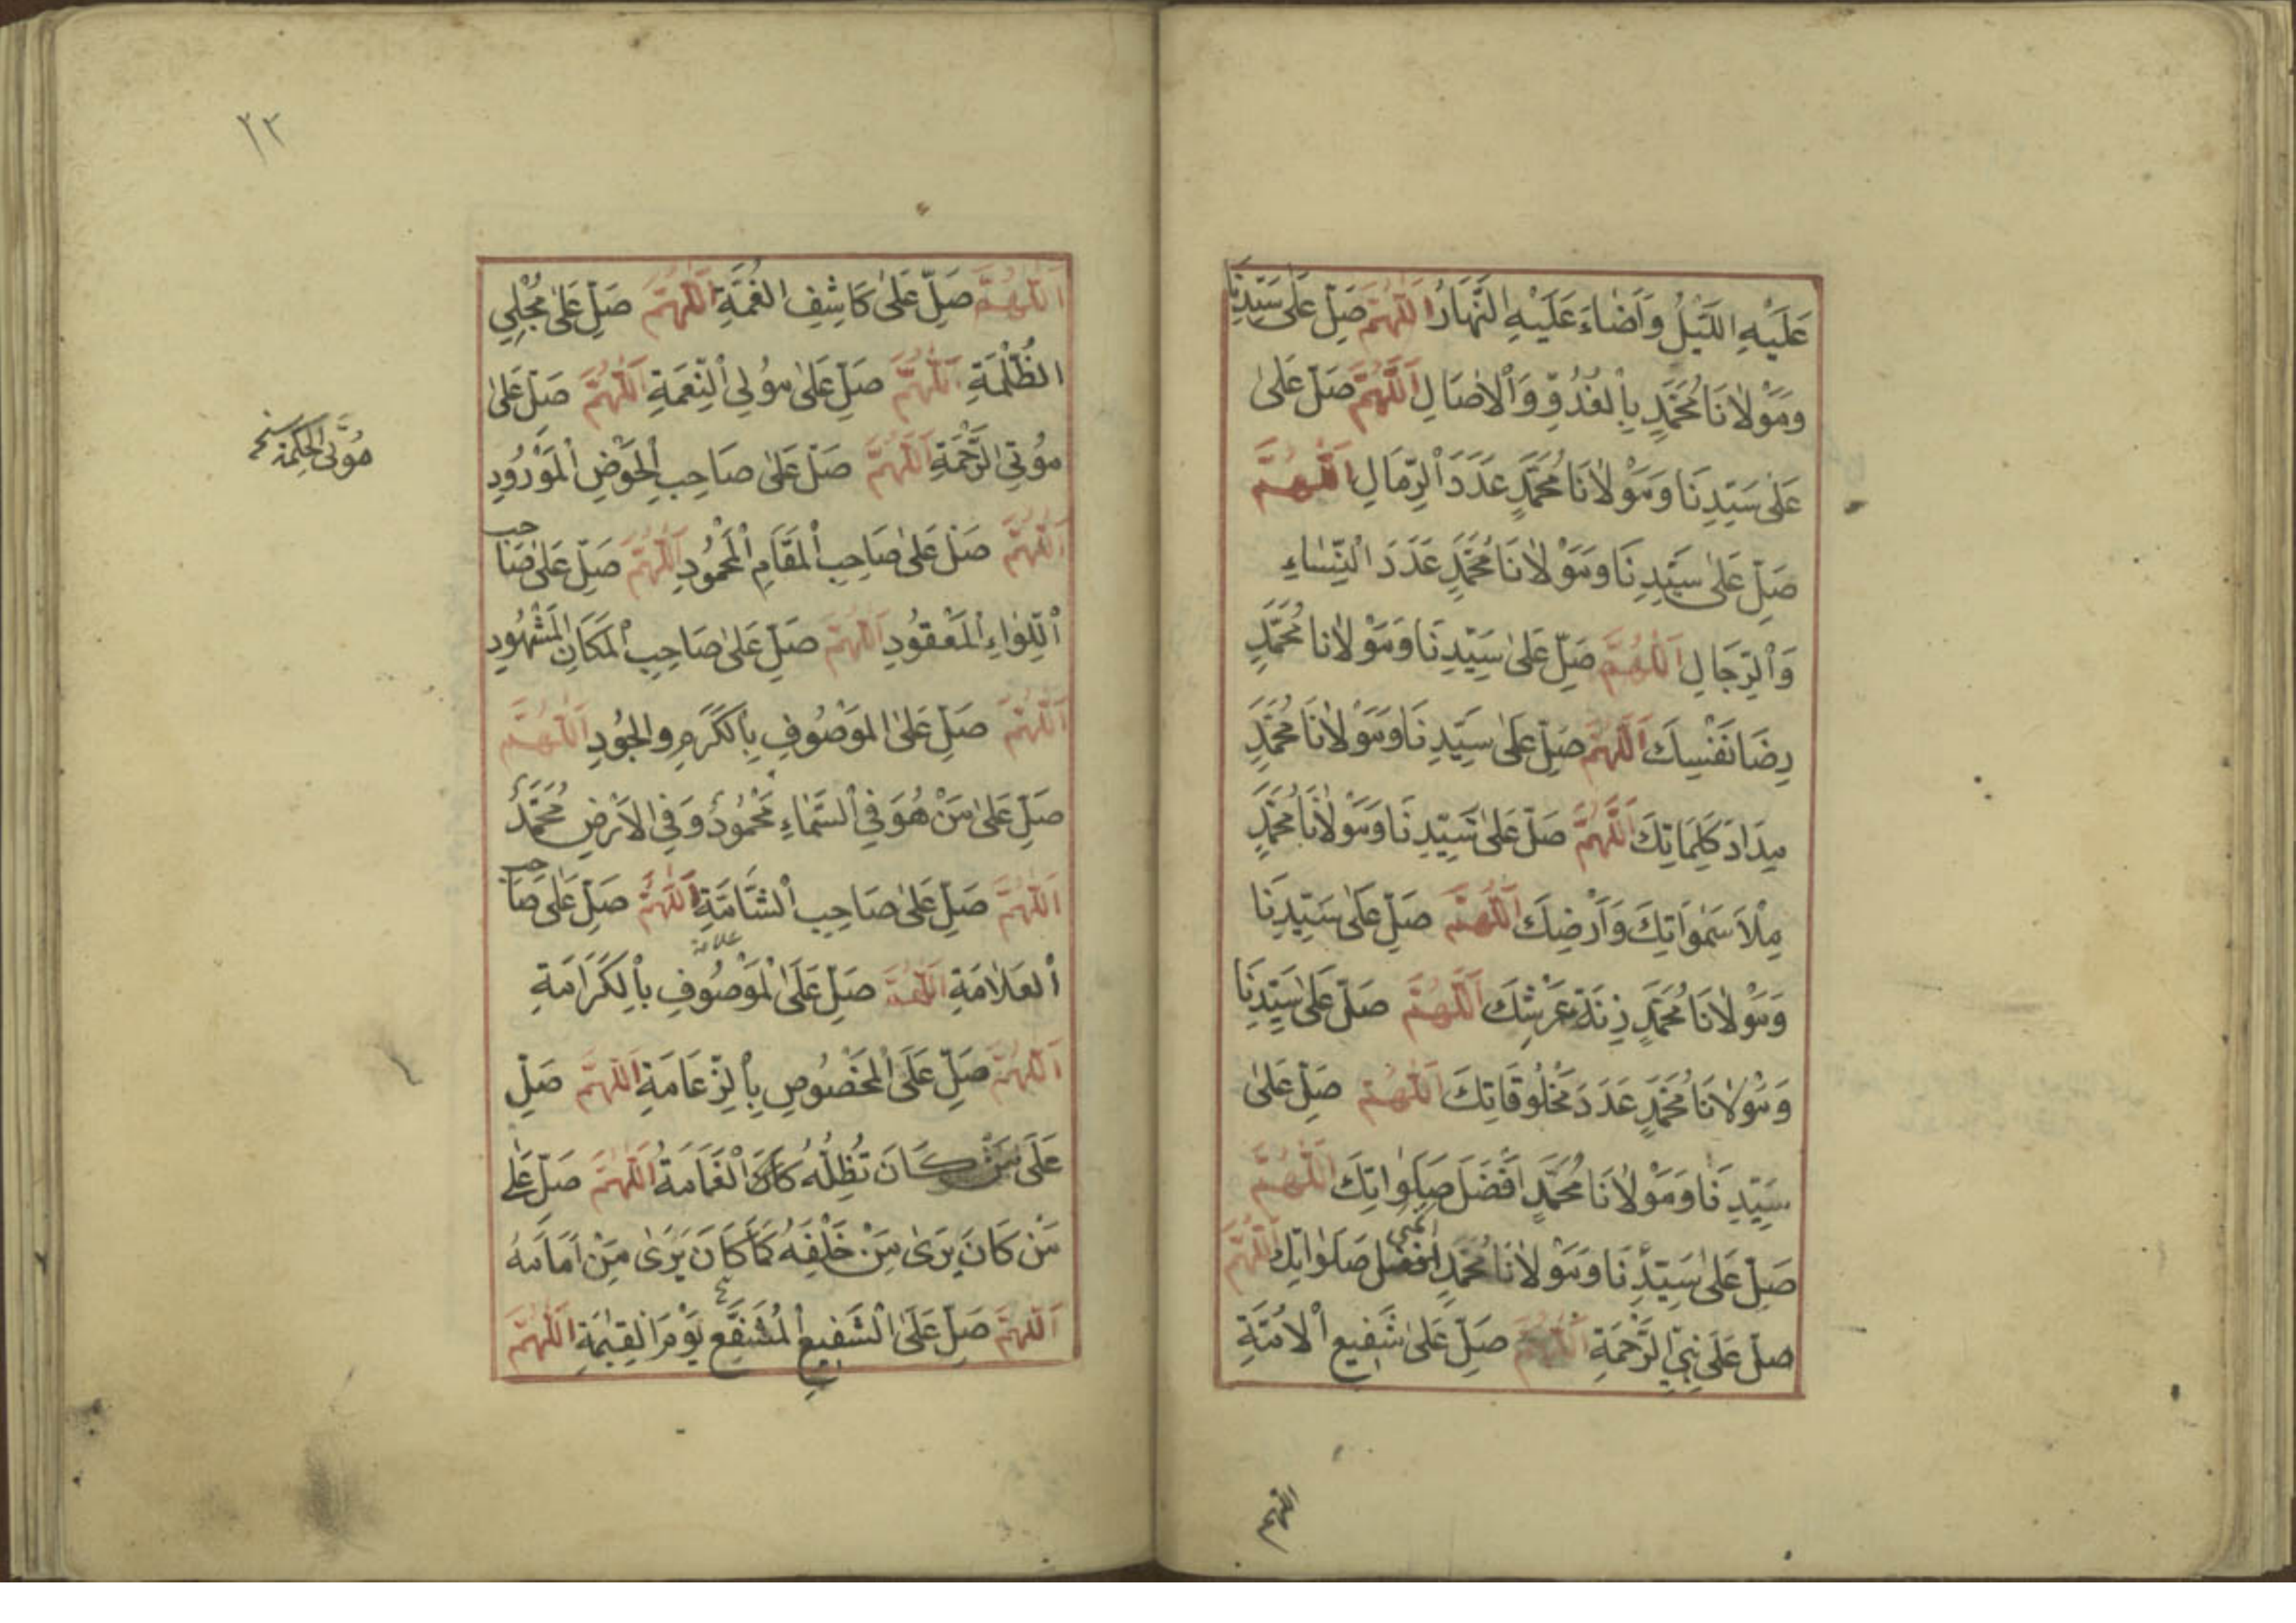 عَلَيْهِ اللَّيْلُ وَأَضَاءَ عَلَيْهِ النَّهَارُ اَللّٰهُمَّ صَلِّ عَلٰى سَيِّدِنَا
وَمَوْلَانَا مُحَمَّدٍ بِالْغُدُوِّ وَالْاٰصَالِ اَللّٰهُمَّ صَلِّ عَلٰى
عَلٰى سَيِّدِنَا وَمَوْلَانَا مُحَمَّدٍ عَدَدَ الرِّمَالِ اَللّٰهُمَّ
صَلِّ عَلٰى سَيِّدِنَا وَمَوْلَانَا مُحَمَّدٍ عَدَدَ النِّسَاءِ
وَالرِّجَالِ اَللّٰهُمَّ صَلِّ عَلٰى سَيِّدِنَا وَمَوْلَانَا مُحَمَّدٍ
رِضَا نَفْسِكَ اَللّٰهُمَّ صَلِّ عَلٰى سَيِّدِنَا وَمَوْلَانَا مُحَمَّدٍ
مِدَادَ كَلِمَاتِكَ اَللّٰهُمَّ صَلِّ عَلٰى سَيِّدِنَا وَمَوْلَانَا مُحَمَّدٍ
مِلْأَ سَمٰوَاتِكَ وَأَرْضِكَ اَللّٰهُمَّ صَلِّ عَلٰى سَيِّدِنَا
وَمَوْلَانَا مُحَمَّدٍ زِنَةَ عَرْشِكَ اَللّٰهُمَّ صَلِّ عَلٰى سَيِّدِنَا
وَمَوْلَانَا مُحَمَّدٍ عَدَدَ مَخْلُوقَاتِكَ اَللّٰهُمَّ صَلِّ عَلٰى
سَيِّدِنَا وَمَوْلَانَا مُحَمَّدٍ اَفْضَلَ صَلَوَاتِكَ اَللّٰهُمَّ
صَلِّ عَلٰى سَيِّدِنَا وَمَوْلَانَا مُحَمَّدٍ افضل صَلَوَاتِكَ اَللّٰهُمَّ
صَلِّ عَلٰى نَبِيِّ الرَّحْمَةِ اَللّٰهُمَّ صَلِّ عَلٰى شَفِيعِ الْاُمَّةِ
اللهم
٢٣
اَللّٰهُمَّ صَلِّ عَلٰى كَاشِفِ الْغُمَّةِ اَللّٰهُمَّ صَلِّ عَلٰى مُجْلِي
الظُّلْمَةِ اَللّٰهُمَّ صَلِّ عَلٰى مُولِي النِّعْمَةِ اَللّٰهُمَّ صَلِّ عَلٰى
مُؤْتِي الرَّحْمَةِ اَللّٰهُمَّ صَلِّ عَلٰى صَاحِبِ الْحَوْضِ الْمَوْرُودِ
مُؤتى الحكمة نسخه
اَللّٰهُمَّ صَلِّ عَلٰى صَاحِبِ الْمَقَامِ الْمَحْمُودِ اَللّٰهُمَّ صَلِّ عَلٰى صَاحِب
اللِّوَاءِ الْمَعْقُودِ اَللّٰهُمَّ صَلِّ عَلٰى صَاحِبِ الْمَكَانِ الْمَشْهُودِ
اَللّٰهُمَّ صَلِّ عَلَى الْمَوْصُوفِ بِالْكَرَمِ وَالْجُودِ اَللّٰهُمَّ
صَلِّ عَلٰى مَنْ هُوَ فِي السَّمَاءِ مَحْمُودٌ وَفِي الْاَرْضِ مُحَمَّدٌ
اَللّٰهُمَّ صَلِّ عَلٰى صَاحِبِ الشَّامَةِ اَللّٰهُمَّ صَلِّ عَلٰى صَاحِب
الْعَلَامَةِ اَللّٰهُمَّ صَلِّ عَلَى الْمَوْصُوفِ بِالْكَرَامَةِ
اَللّٰهُمَّ صَلِّ عَلَى الْمَخْصُوصِ بِالزَّعَامَةِ اَللّٰهُمَّ صَلِّ
عَلٰى مَنْ كَانَ تُظِلُّهُ الْغَمَامَةُ اَللّٰهُمَّ صَلِّ عَلٰى
مَنْ كَانَ يَرَىٰ مِنْ خَلْفِهِ كَمَا كَانَ يَرَىٰ مِنْ اَمَامِهِ
اَللّٰهُمَّ صَلِّ عَلَى الشَّفِيعِ الْمُشَفَّعِ يَوْمَ الْقِيٰمَةِ اَللّٰهُمَّ